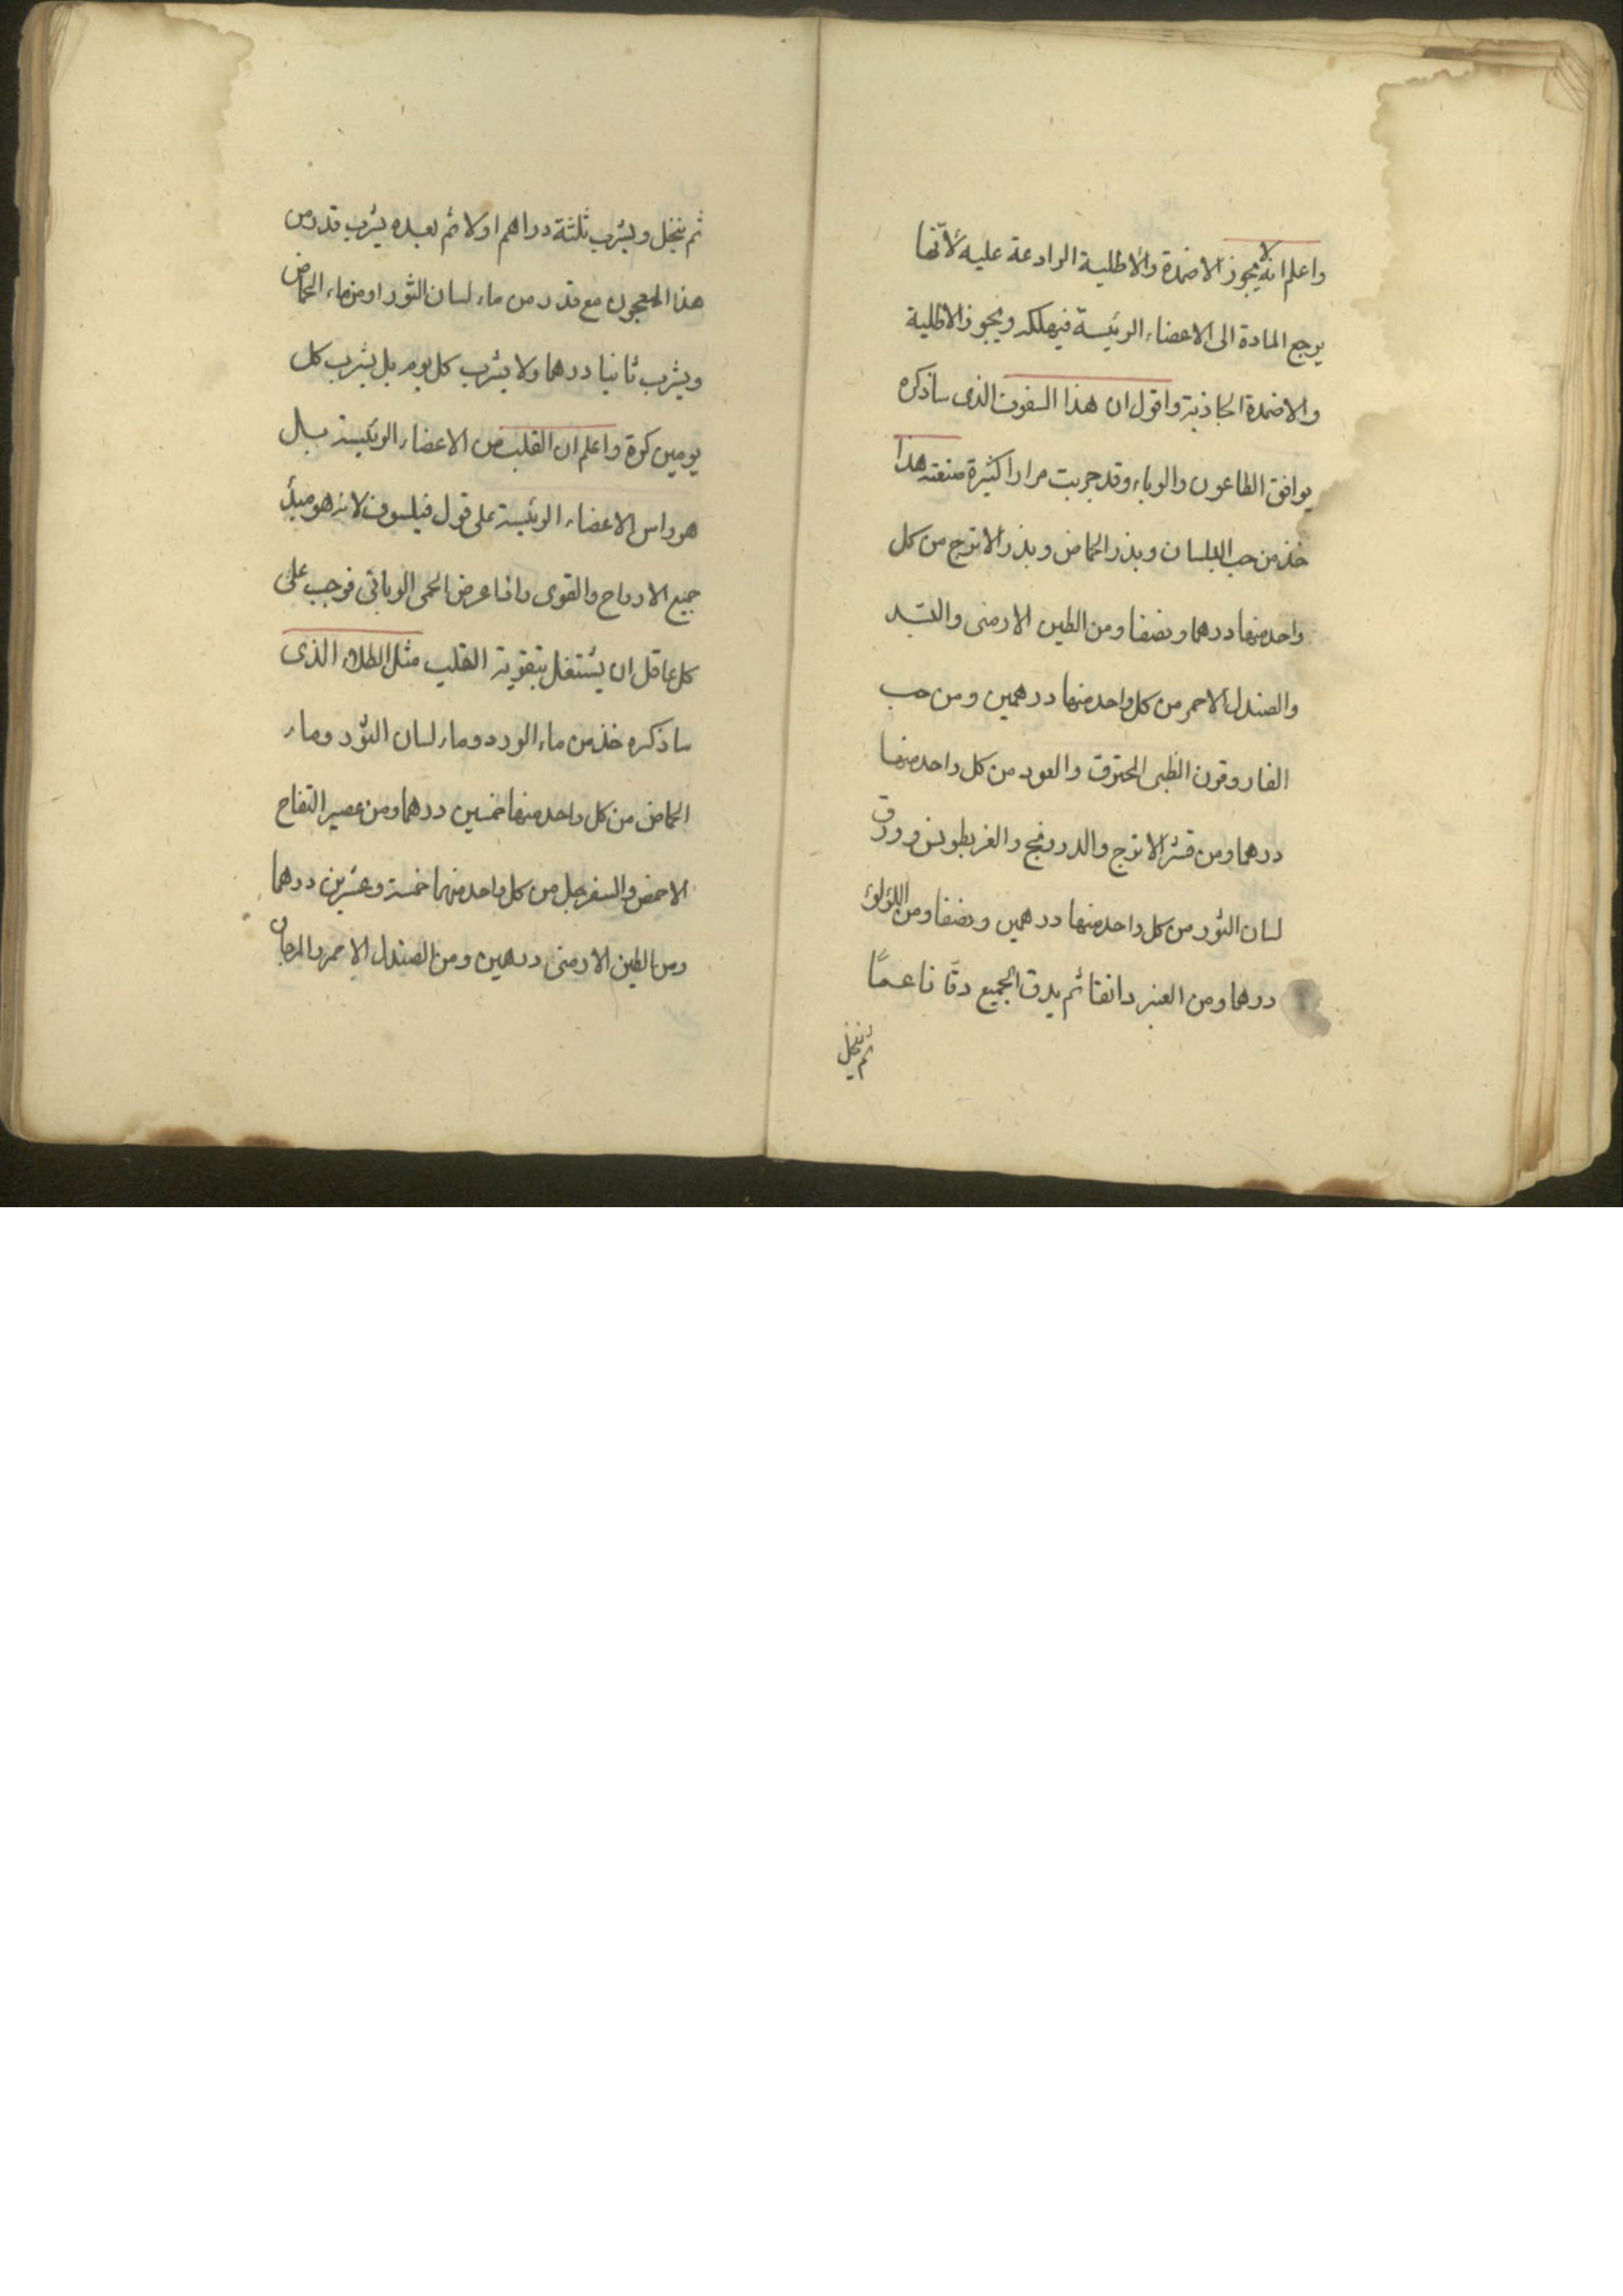 واعلم انه لا يجوز الاضمدة والاطلية الرادعة عليه لانّها
يرجع المادة الى الاعضاء الرئيسة فيهلكه ويجوز الاطلية
والاضمدة الجاذبة واقول ان هذا السفوف الذى ساذكره
يوافق الطاعون والوباء وقد جربت مرارا كثيرة منفعته هذا
خذ من حب البلسان وبذر الحماض وبذر الاترج من كل
واحد منها درهما ونصفا ومن الطين الارمنى والبسّد
والصندل الاحمر من كل واحد منها درهمين ومن حب
الغار وقرون الظبى المحترق والعود من كل واحد منها
درهما ومن قشر الاترج والدرونج والغربطوس وورق
لسان الثور من كل واحد منها درهمين ونصفا ومن اللؤلؤ
درهما ومن العنبر دانقا ثم يدق الجميع دقّا ناعمًا
ثم ينخل
ثم ينخل ويشرب ثلثة دراهم اولا ثم بعده يشرب قدر من
هذا المعجون مع قدر من ماء لسان الثور او من ماء الحماض
ويشرب ثانيا درهما ولا يشرب كل يوم بل يشرب كل
يومين كرة واعلم ان القلب من الاعضاء الرئيسة بل
هو راس الاعضاء الرئيسة على قول فيلسوف لانه هو مبدأ
جميع الارواح والقوى واذا عرض الحمى الوبائى فوجب على
كل عاقل ان يشتغل بتقوية القلب مثل الطلاء الذى
ساذكره خذ من ماء الورد وماء لسان الثور وماء
الحماض من كل واحد منها خمسين درهما ومن عصير التفاح
الاحمض والسفرجل من كل واحد منهما خمسة وعشرين درهما
ومن الطين الارمنى درهمين ومن الصندل الاحمر والمرجان